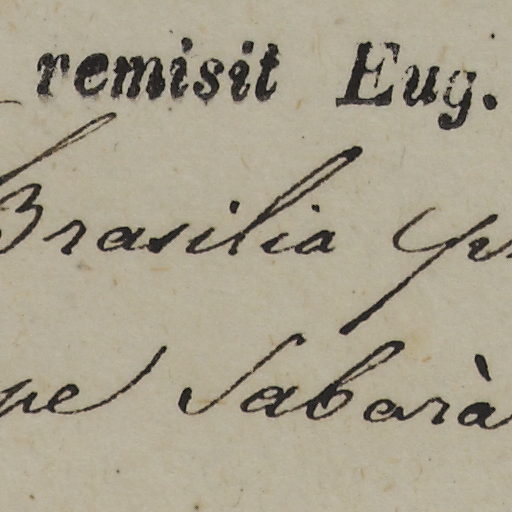 remisit Eug.
Brasilia
pe Sabarà